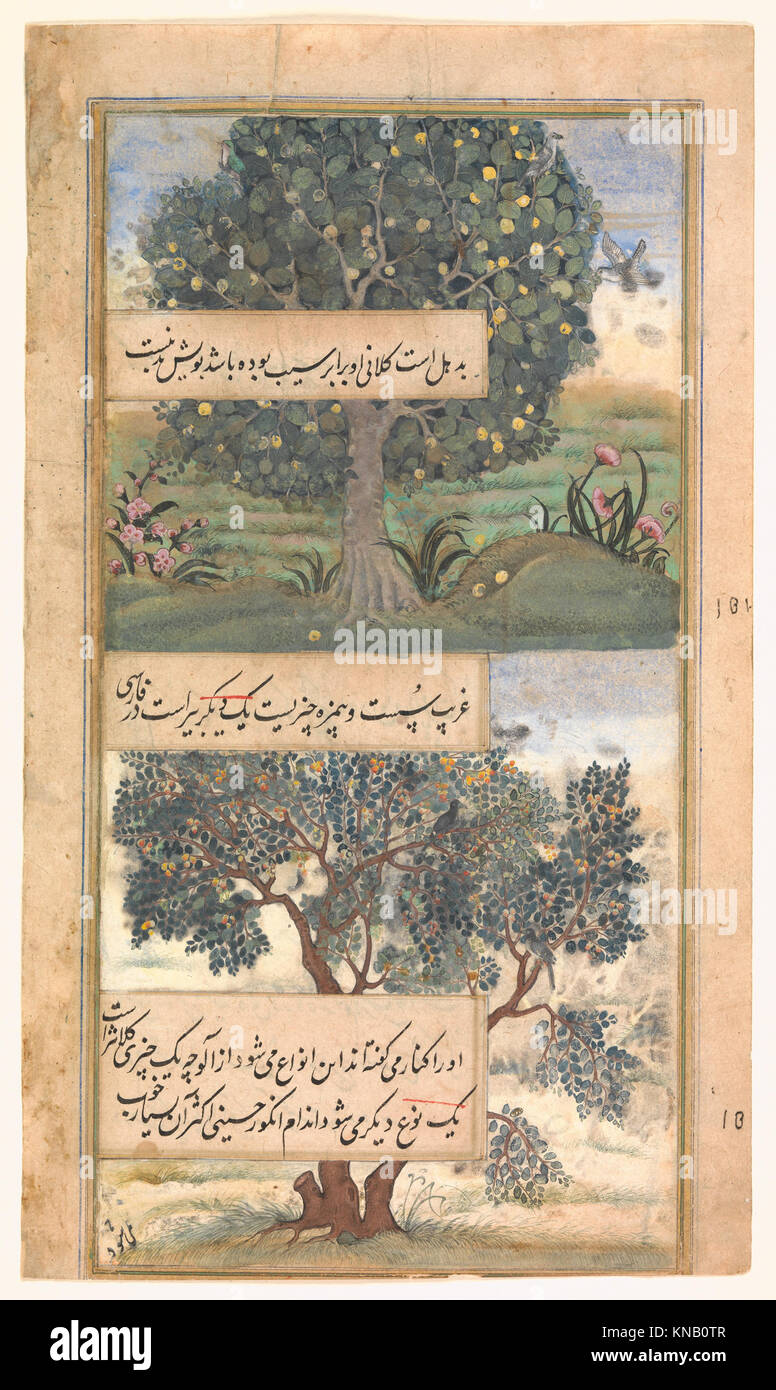 بدهل است کلانی او برابر سیب بوده باشد بویش بد نیست
غریب پُست و بیمزه چیزیست یک دیگر بیر است در فارسی
او را کنار می گفته اند این انواع می شود از آلوچه یک چیزی کلانتر است
یک نوع دیگر می شود اندام انگور حسینی اکثر آن بسیار خوب
alamy
alamy
Image ID: KNB0TR
www.alamy.com